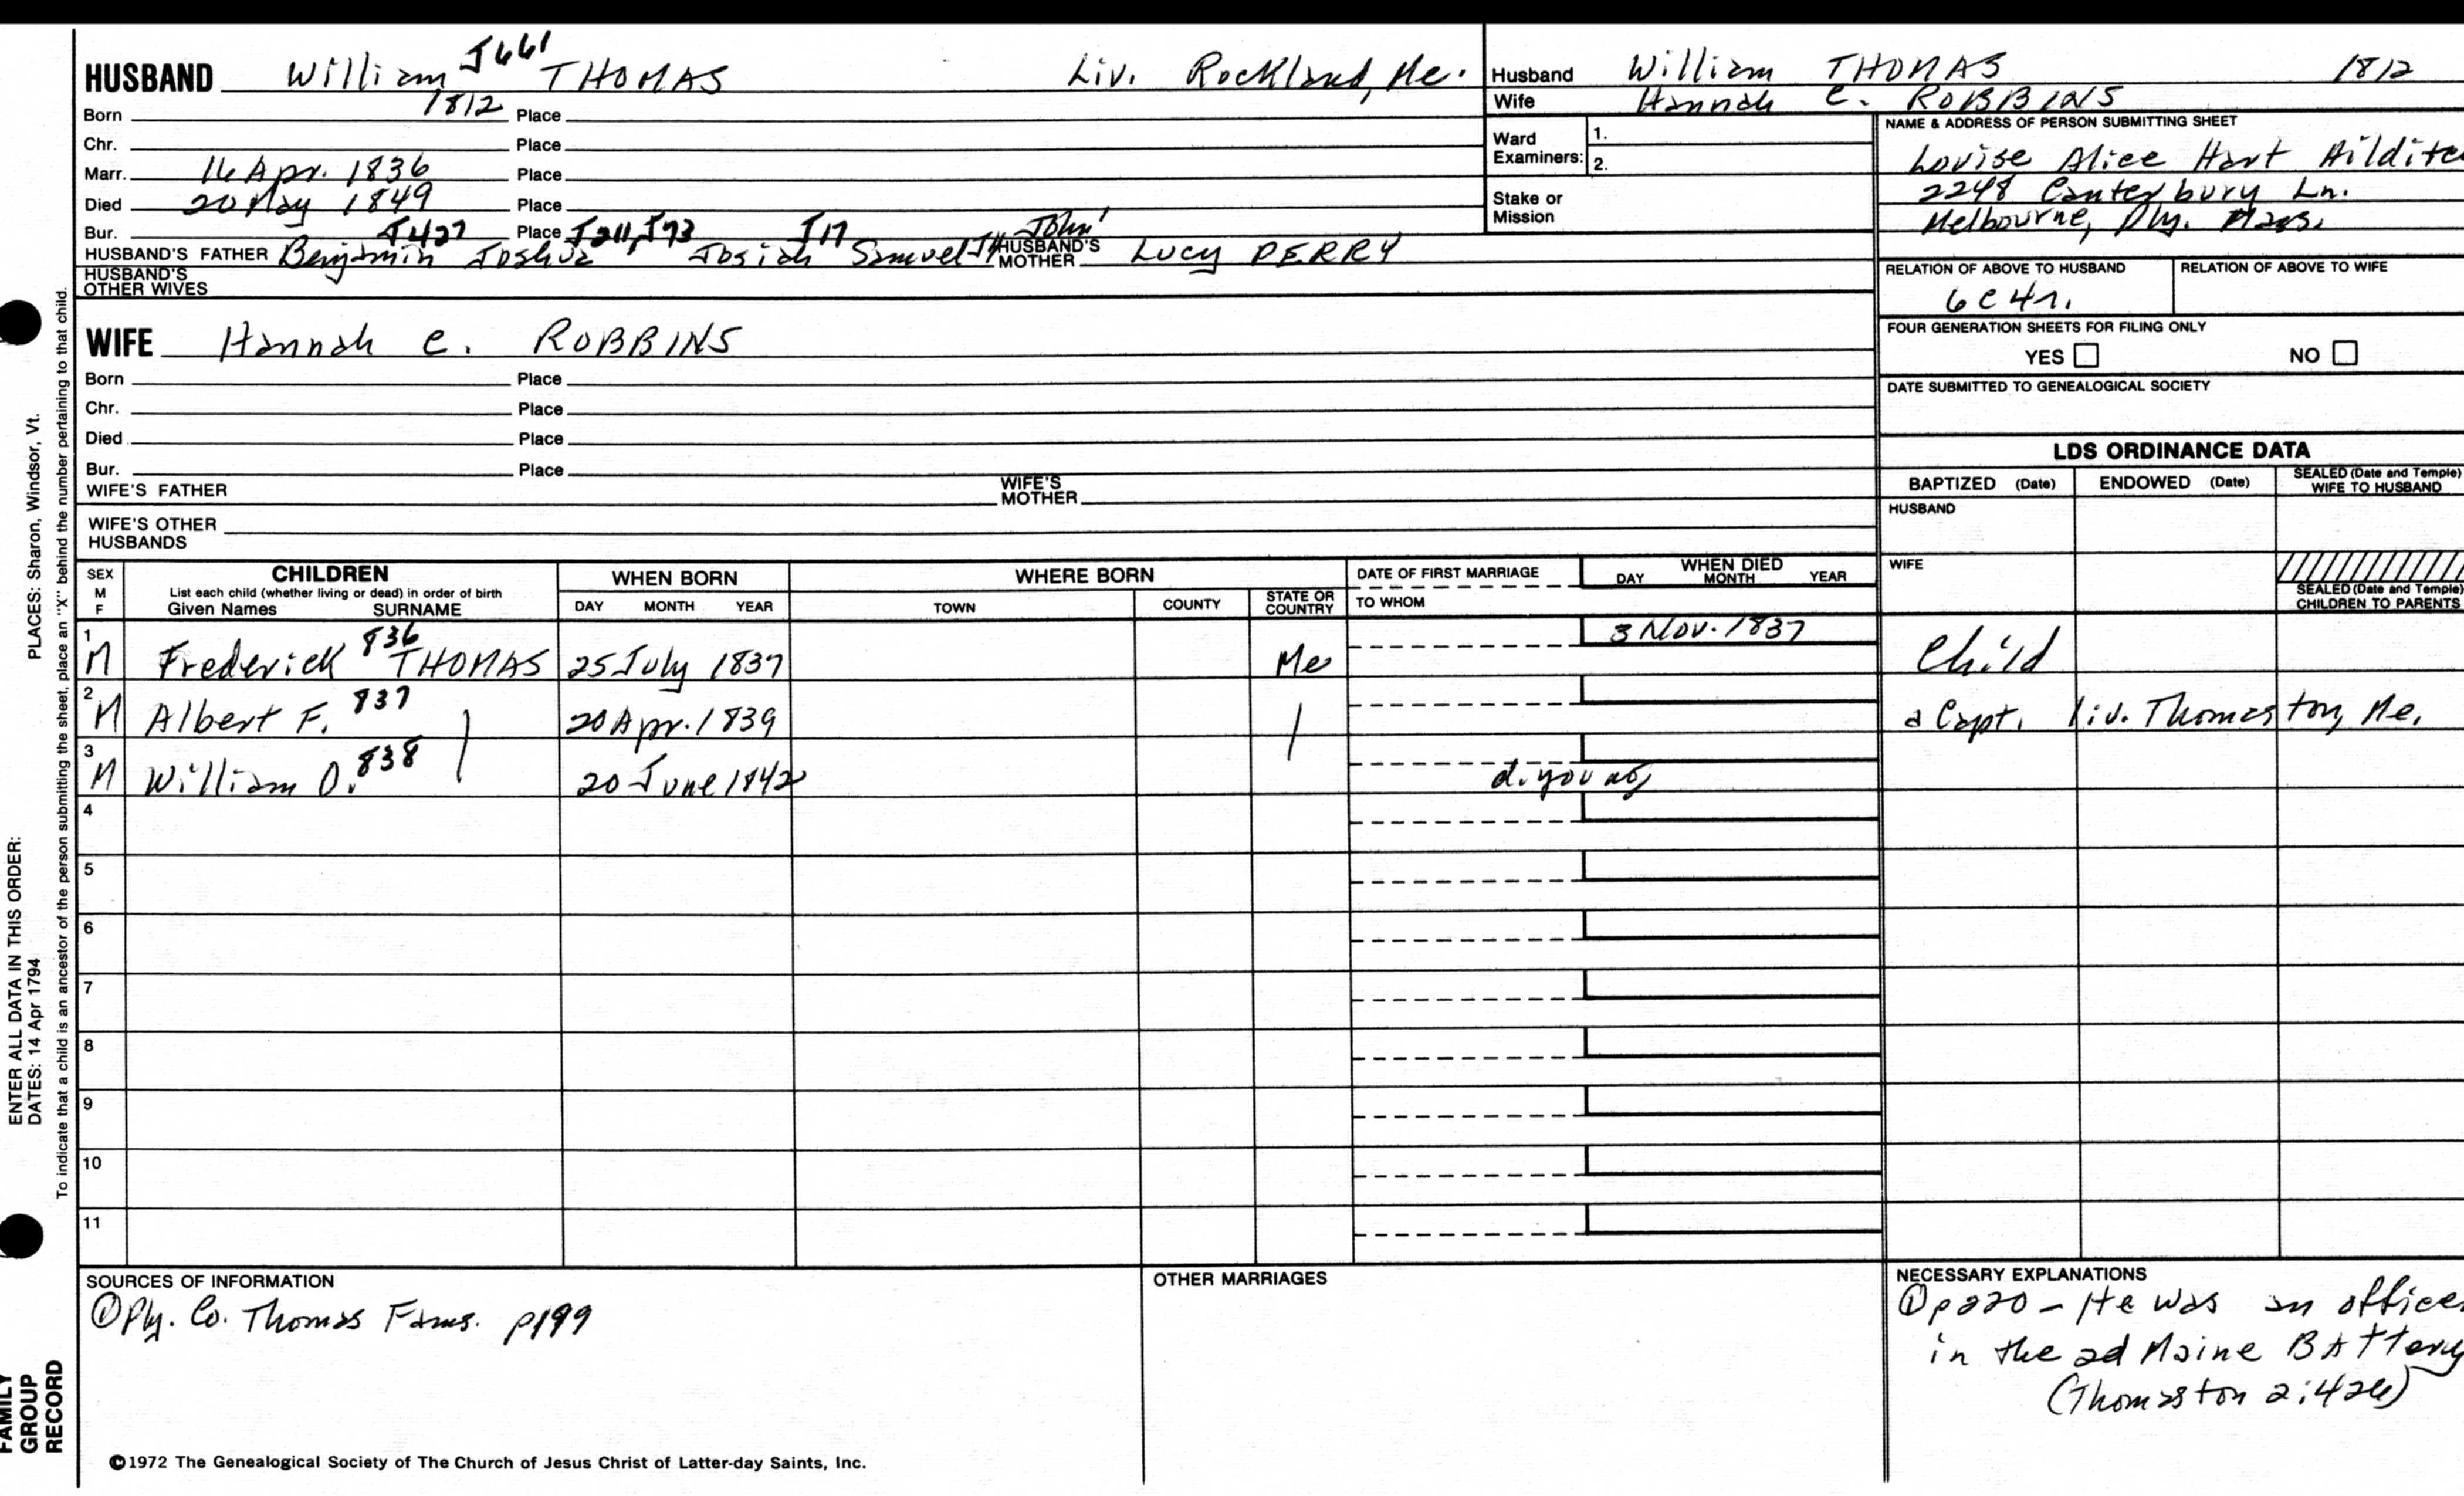 HUSBAND William J661 THOMAS Liv. Rockland, Me.
Born 1812 Place
Chr. Place
Marr. 16 Apr. 1836 Place
Died 20 May 1849 Place
Bur. Place
J427 J211, J73 J17 John'
HUSBAND'S FATHER Benjamin Joshua Josiah Samuel HUSBAND'S MOTHER Lucy PERRY
HUSBAND'S OTHER WIVES
Husband William THOMAS 1812
Wife Hannah C. ROBBINS
Ward Examiners: 1.
2.
Stake or Mission
NAME & ADDRESS OF PERSON SUBMITTING SHEET
Louise Alice Hart
2248 Canterbury Ln.
Melbourne,
RELATION OF ABOVE TO HUSBAND RELATION OF ABOVE TO WIFE
6C4r.
FOUR GENERATION SHEETS FOR FILING ONLY
YES NO
DATE SUBMITTED TO GENEALOGICAL SOCIETY
WIFE Hannah C. ROBBINS
Born Place
Chr. Place
Died Place
Bur. Place
WIFE'S FATHER WIFE'S MOTHER
WIFE'S OTHER HUSBANDS
LDS ORDINANCE DATA
BAPTIZED (Date) ENDOWED (Date) SEALED (Date and Temple) WIFE TO HUSBAND
HUSBAND
WIFE
SEALED (Date and Temple) CHILDREN TO PARENTS
SEX M F
CHILDREN
List each child (whether living or dead) in order of birth
Given Names SURNAME
WHEN BORN
DAY MONTH YEAR
WHERE BORN
TOWN COUNTY STATE OR COUNTRY
DATE OF FIRST MARRIAGE
TO WHOM
WHEN DIED
DAY MONTH YEAR
1 M Frederick 836 THOMAS 25 July 1837 Me 3 Nov. 1837 Child
2 M Albert F. 837 20 Apr. 1839 a Capt. liv. Thomaston, Me.
3 M William O. 838 20 June 1842 d. young
4
5
6
7
8
9
10
11
SOURCES OF INFORMATION
① Ply. Co. Thomas Fams. p199
OTHER MARRIAGES
NECESSARY EXPLANATIONS
① p220 - He was an officer
in the 2d Maine Battery
(Thomaston 2:426)
©1972 The Genealogical Society of The Church of Jesus Christ of Latter-day Saints, Inc.
PLACES: Sharon, Windsor, Vt.
ENTER ALL DATA IN THIS ORDER:
DATES: 14 Apr 1794
To indicate that a child is an ancestor of the person submitting the sheet, place an "X" behind the number pertaining to that child.
FAMILY
GROUP
RECORD